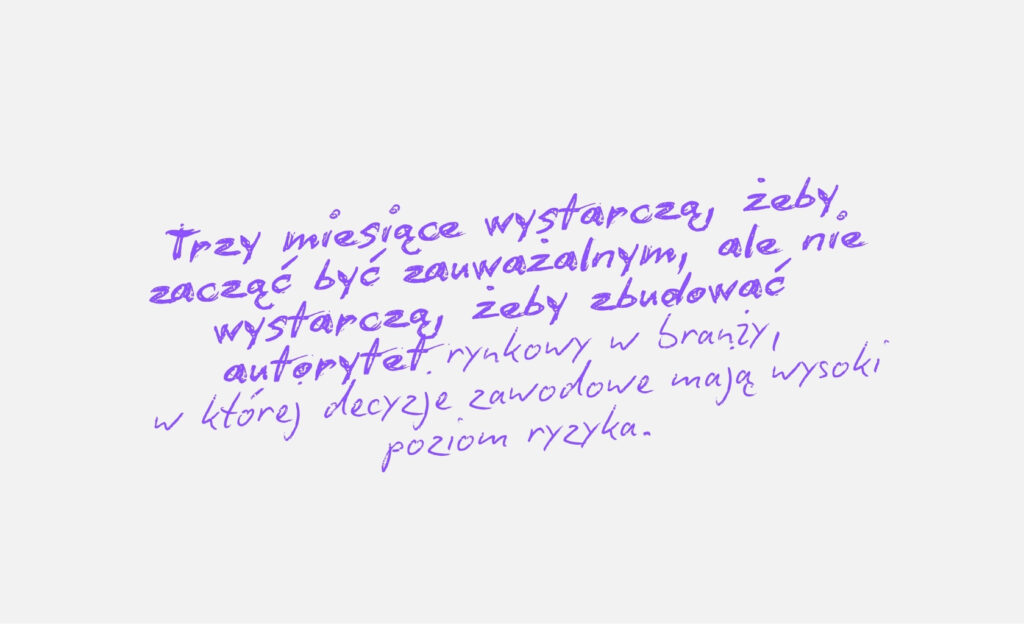 Trzy miesiące wystarczą, żeby
zacząć być zauważalnym, ale nie
wystarczą, żeby zbudować
autorytet rynkowy w branży,
w której decyzje zawodowe mają wysoki
poziom ryzyka.